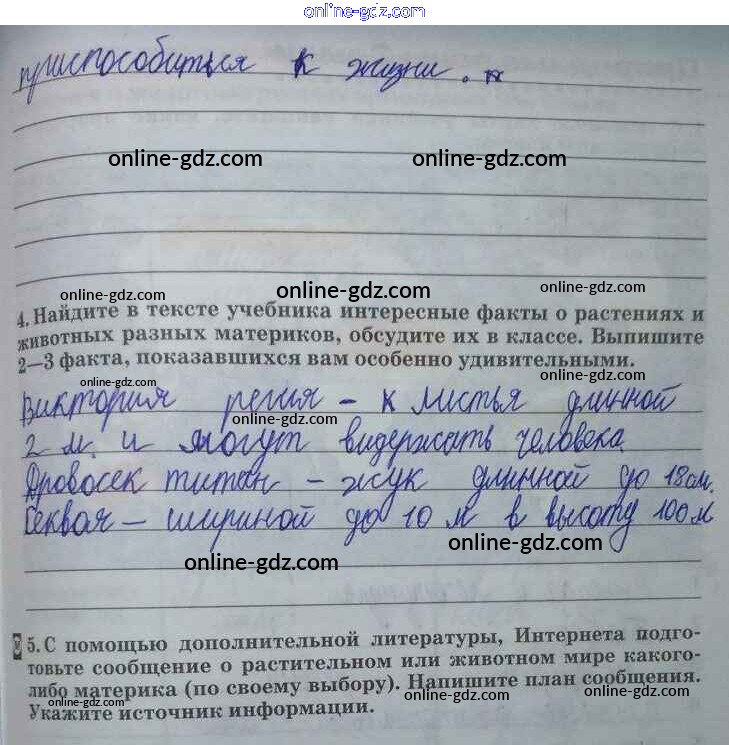 online-gdz.com
приспособиться к жизни.
online-gdz.com online-gdz.com
online-gdz.com online-gdz.com online-gdz.com
4. Найдите в тексте учебника интересные факты о растениях и
животных разных материков, обсудите их в классе. Выпишите
2—3 факта, показавшихся вам особенно удивительными.
online-gdz.com online-gdz.com
Виктория регия – к листья длинной
online-gdz.com
2 м. и могут видержать человека
Дровосек титан – жук длинной до 18 см.
Секвоя – шириной до 10 м в высоту 100 м
online-gdz.com online-gdz.com
5. С помощью дополнительной литературы, Интернета подго-
товьте сообщение о растительном или животном мире какого-
либо материка (по своему выбору). Напишите план сообщения.
online-gdz.com online-gdz.com online-gdz.com
Укажите источник информации.